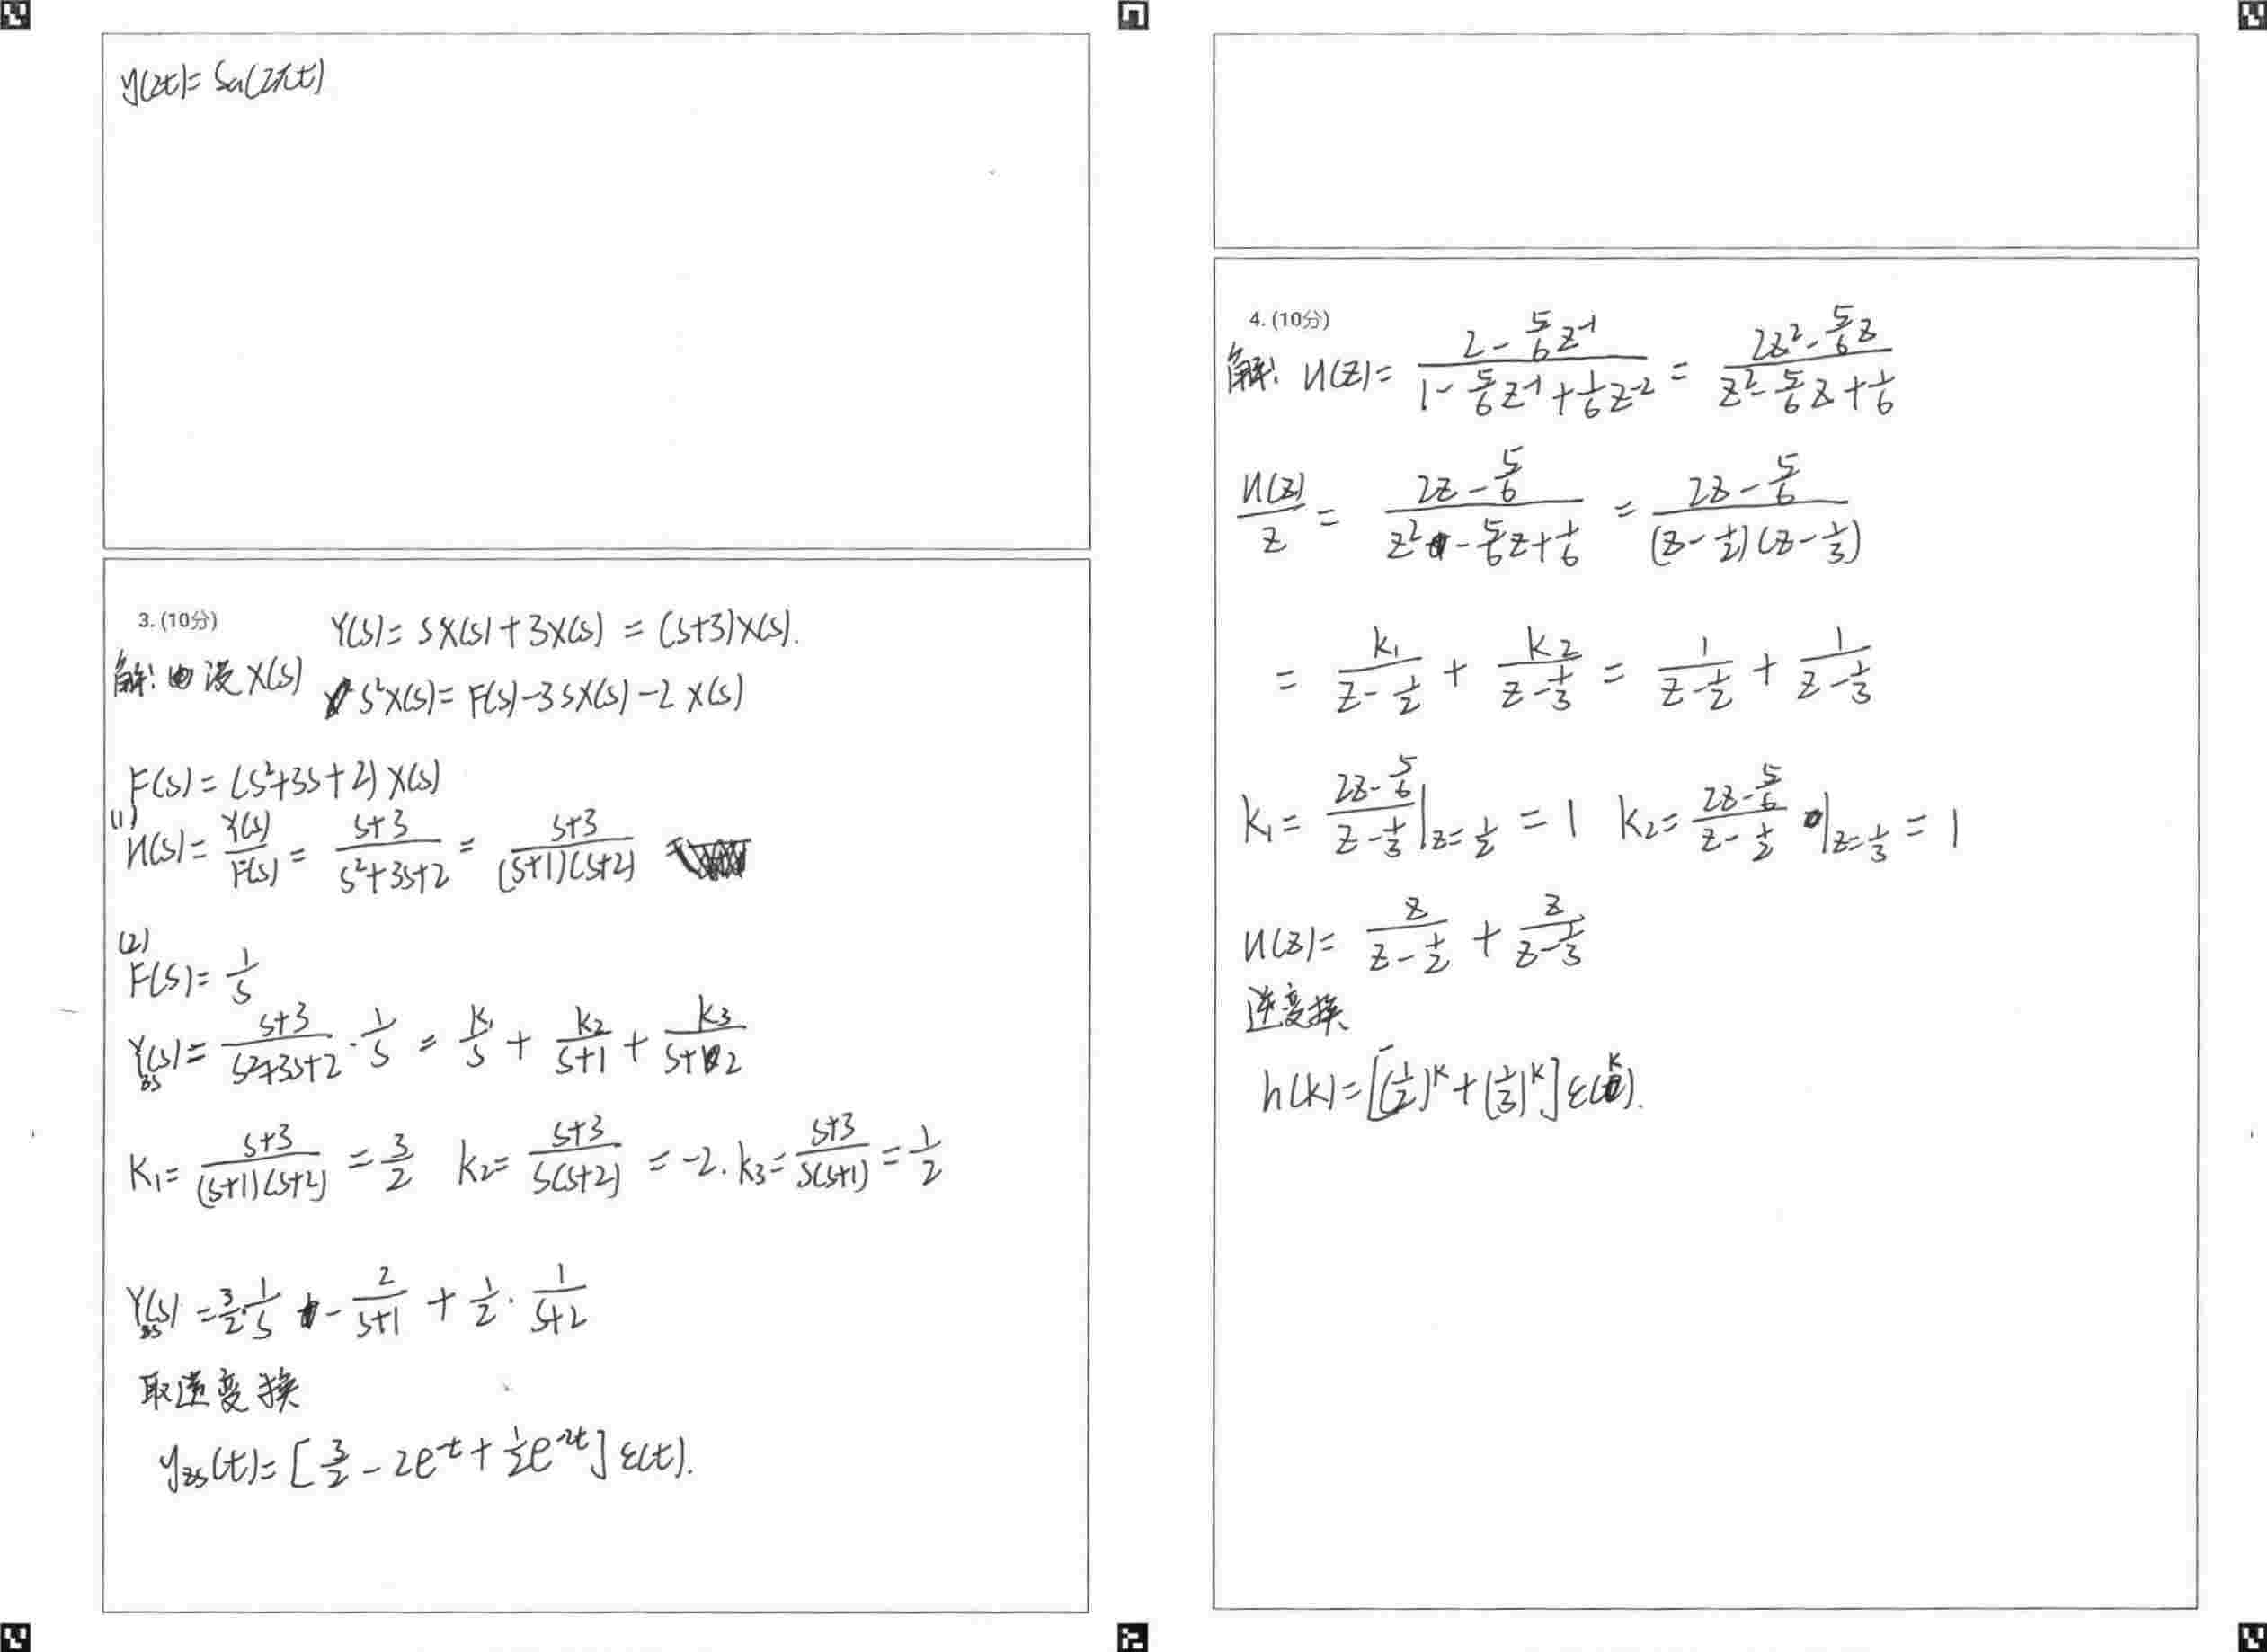 y(2t)= Sa(2πt)
3. (10分)
Y(s)= sX(s)+3X(s) = (s+3)X(s).
解: 设X(s)
s²X(s)= F(s)-3sX(s)-2X(s)
F(s)= (s²+3s+2)X(s)
(1)
H(s)= Y(s)/F(s) = (s+3)/(s²+3s+2) = (s+3)/((s+1)(s+2))
(2)
F(s)= 1/s
Yzs(s)= (s+3)/(s²+3s+2) · 1/s = k₁/s + k₂/(s+1) + k₃/(s+2)
K₁= (s+3)/((s+1)(s+2)) = 3/2 k₂= (s+3)/(s(s+2)) = -2. k₃= (s+3)/(s(s+1)) = 1/2
Yzs(s) = 3/2·1/s - 2/(s+1) + 1/2 · 1/(s+2)
取逆变换
yzs(t)= [3/2 - 2e^-t + 1/2 e^-2t] ε(t).
4. (10分)
解: H(z)= (2 - 5/6 z⁻¹)/(1 - 5/6 z⁻¹ + 1/6 z⁻²) = (2z² - 5/6 z)/(z² - 5/6 z + 1/6)
H(z)/z = (2z - 5/6)/(z² - 5/6 z + 1/6) = (2z - 5/6)/((z - 1/2)(z - 1/3))
= k₁/(z - 1/2) + k₂/(z - 1/3) = 1/(z - 1/2) + 1/(z - 1/3)
k₁= (2z - 5/6)/(z - 1/3) |z=1/2 = 1 k₂= (2z - 5/6)/(z - 1/2) |z=1/3 = 1
H(z)= z/(z - 1/2) + z/(z - 1/3)
逆变换
h(k)= [(1/2)^k + (1/3)^k] ε(k).